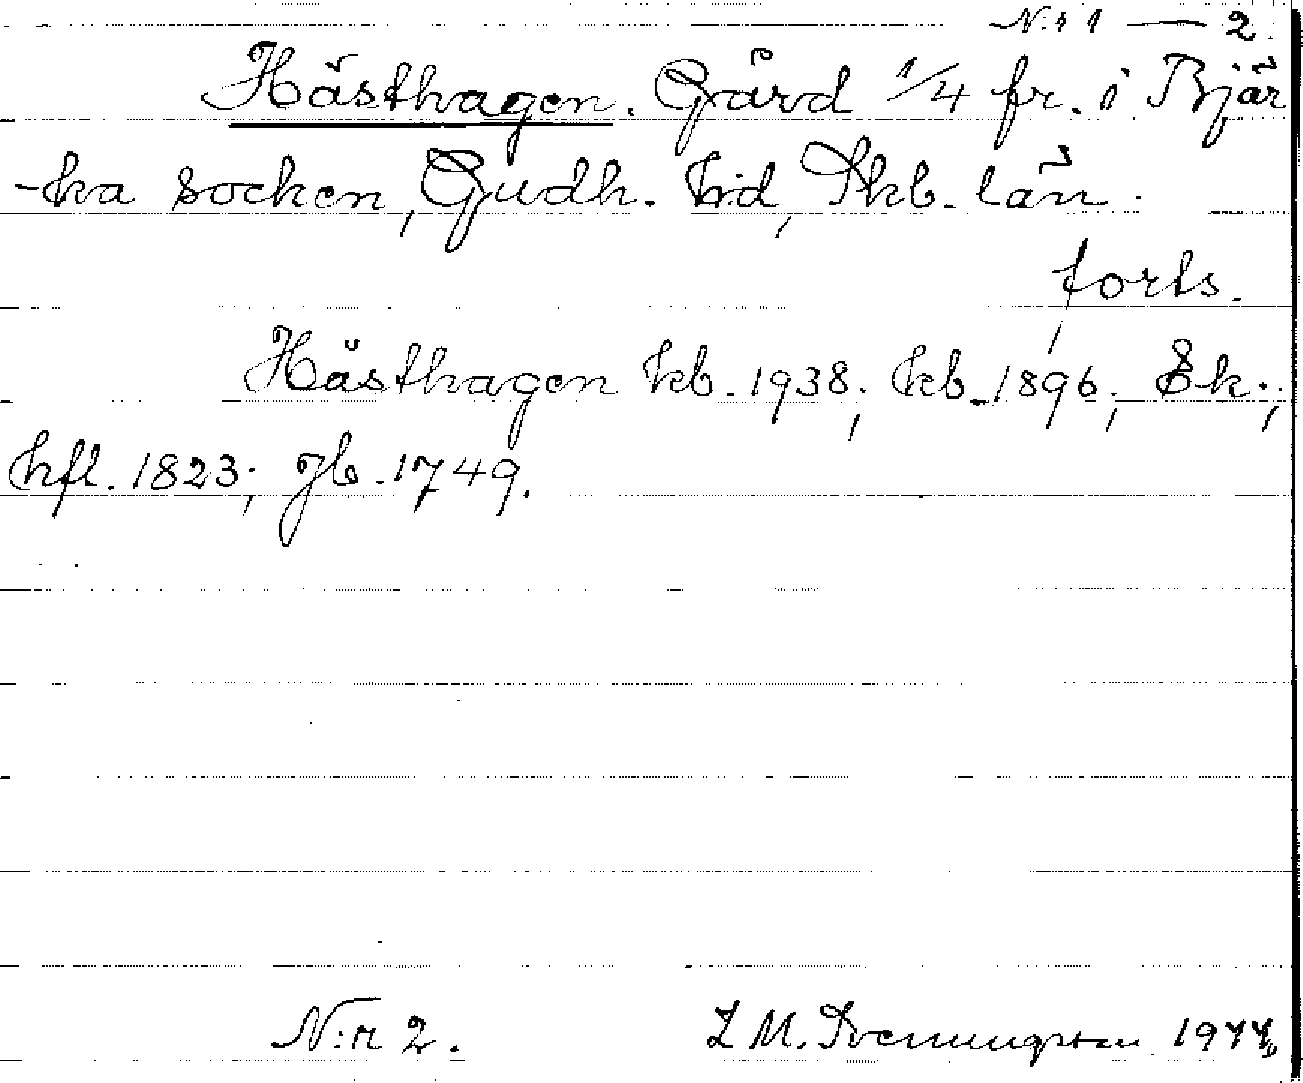 N:r 1 — 2.
Hästhagen. Gård 1/4 fr. i Bjär
-ka socken, Gudh. hd, Skb. län.
forts.
Hästhagen kb. 1938; kb. 1896; Ek.;
hfl. 1823; jb. 1749.
N:r 2. L M. Svenungsson 1944.